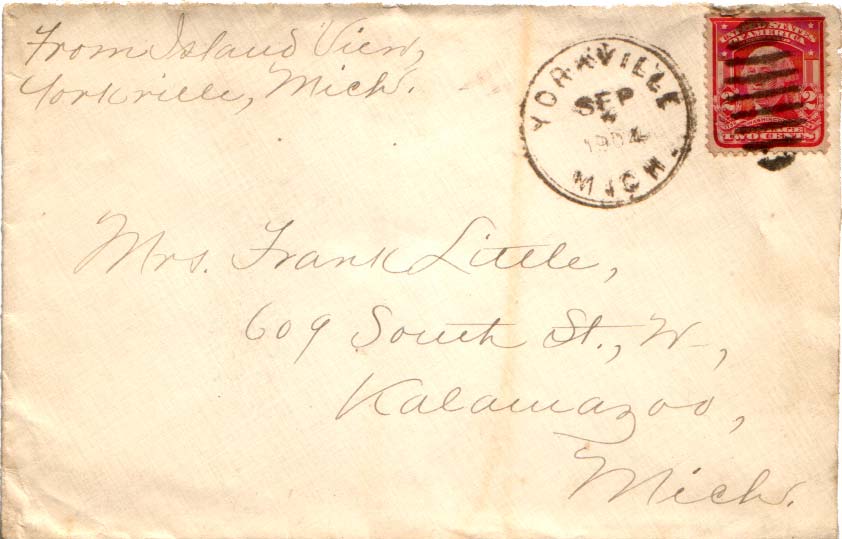 From Island View,
Yorkville, Mich.
YORKVILLE
SEP
4
1904
MICH.
UNITED STATES
OF AMERICA
2 2
TWO CENTS
Mrs. Frank Little,
609 South St., W.,
Kalamazoo,
Mich.